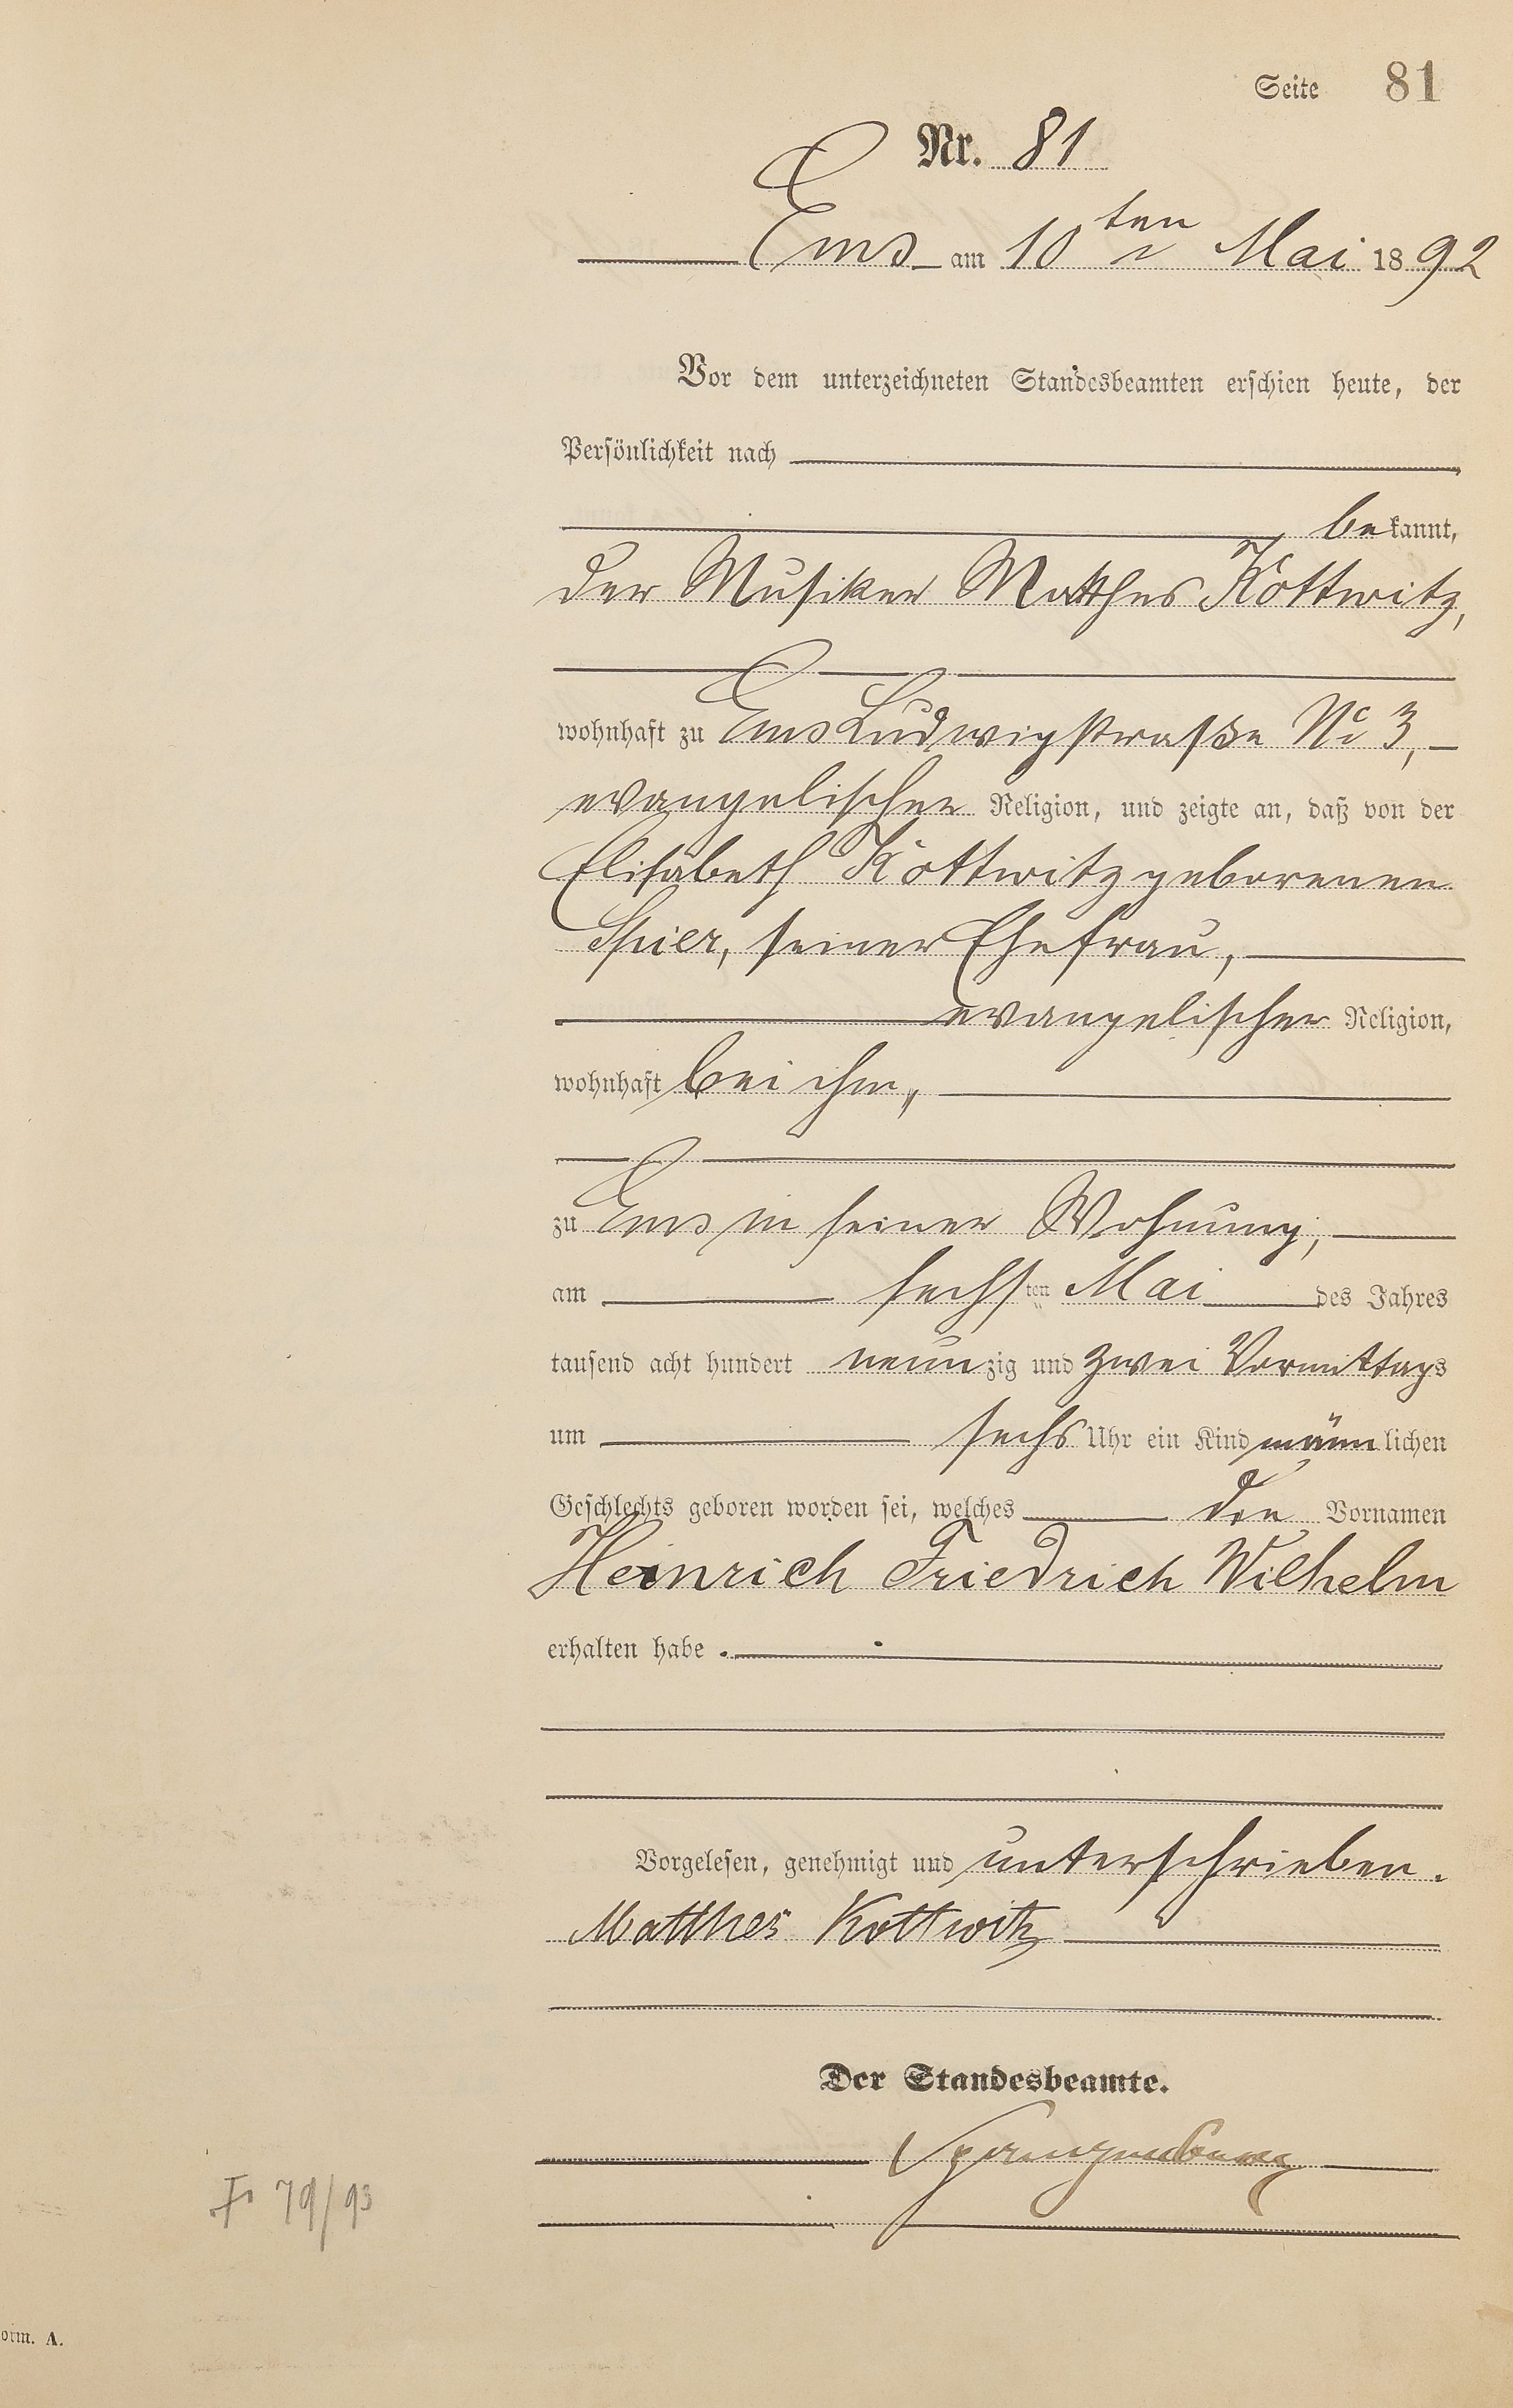 Seite 81
Nr. 81
Ems am 10ten Mai 1892
Vor dem unterzeichneten Standesbeamten erschien heute, der
Persönlichkeit nach
bekannt,
der Musiker Matthes Kottwitz,
wohnhaft zu Ems Ludwigstraße No 3,
evangelischer Religion, und zeigte an, daß von der
Elisabeth Kottwitz geborenen
Spier, seiner Ehefrau,
evangelischer Religion,
wohnhaft bei ihm,
zu Ems in seiner Wohnung,
am sechsten Mai des Jahres
tausend acht hundert neunzig und zwei Vormittags
um sechs Uhr ein Kind männlichen
Geschlechts geboren worden sei, welches die Vornamen
Heinrich Friedrich Wilhelm
erhalten habe.
Vorgelesen, genehmigt und unterschrieben.
Matthes Kottwitz
Der Standesbeamte.
79/93
orm. A.